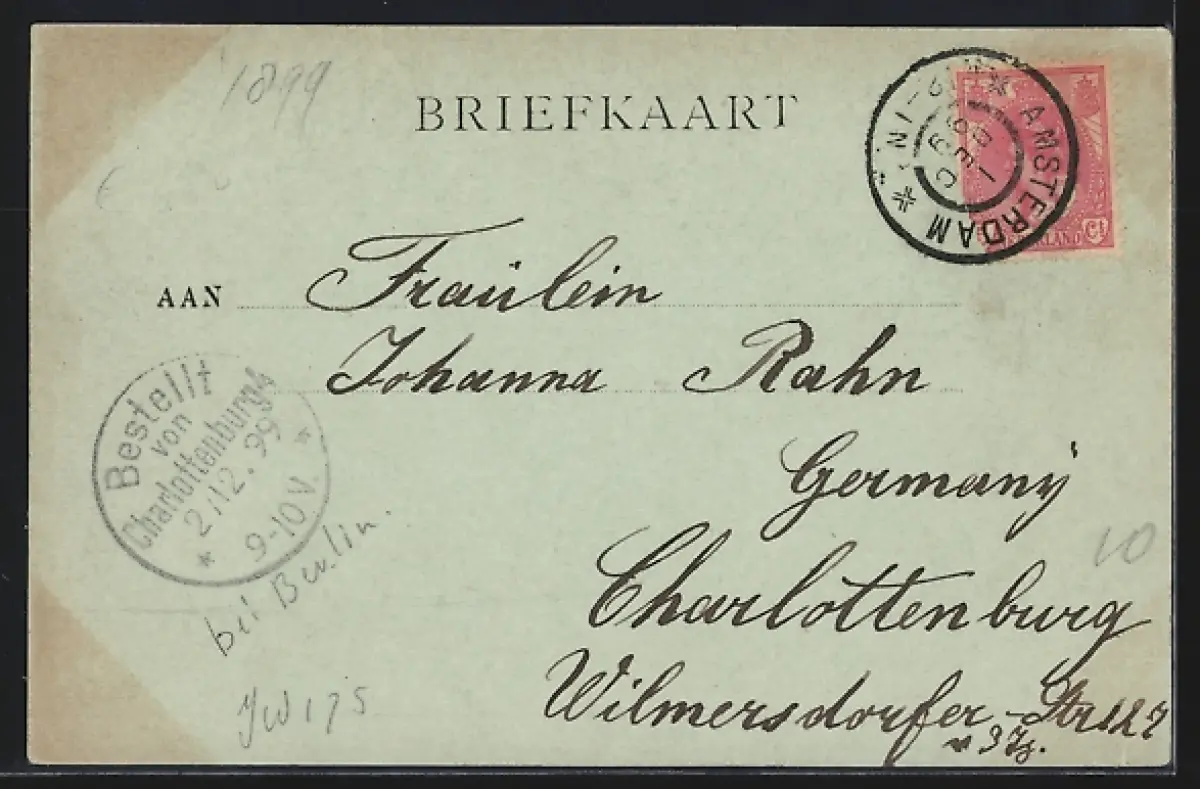 1899
BRIEFKAART
AMSTERDAM
1 DEC 99
AAN Fraülein
Johanna Rahn
Germany
Charlottenburg
Wilmersdorfer-Str 127
Bestellt
von
Charlottenburg 4
2/12.99
9-10V.
bei Berlin.
10